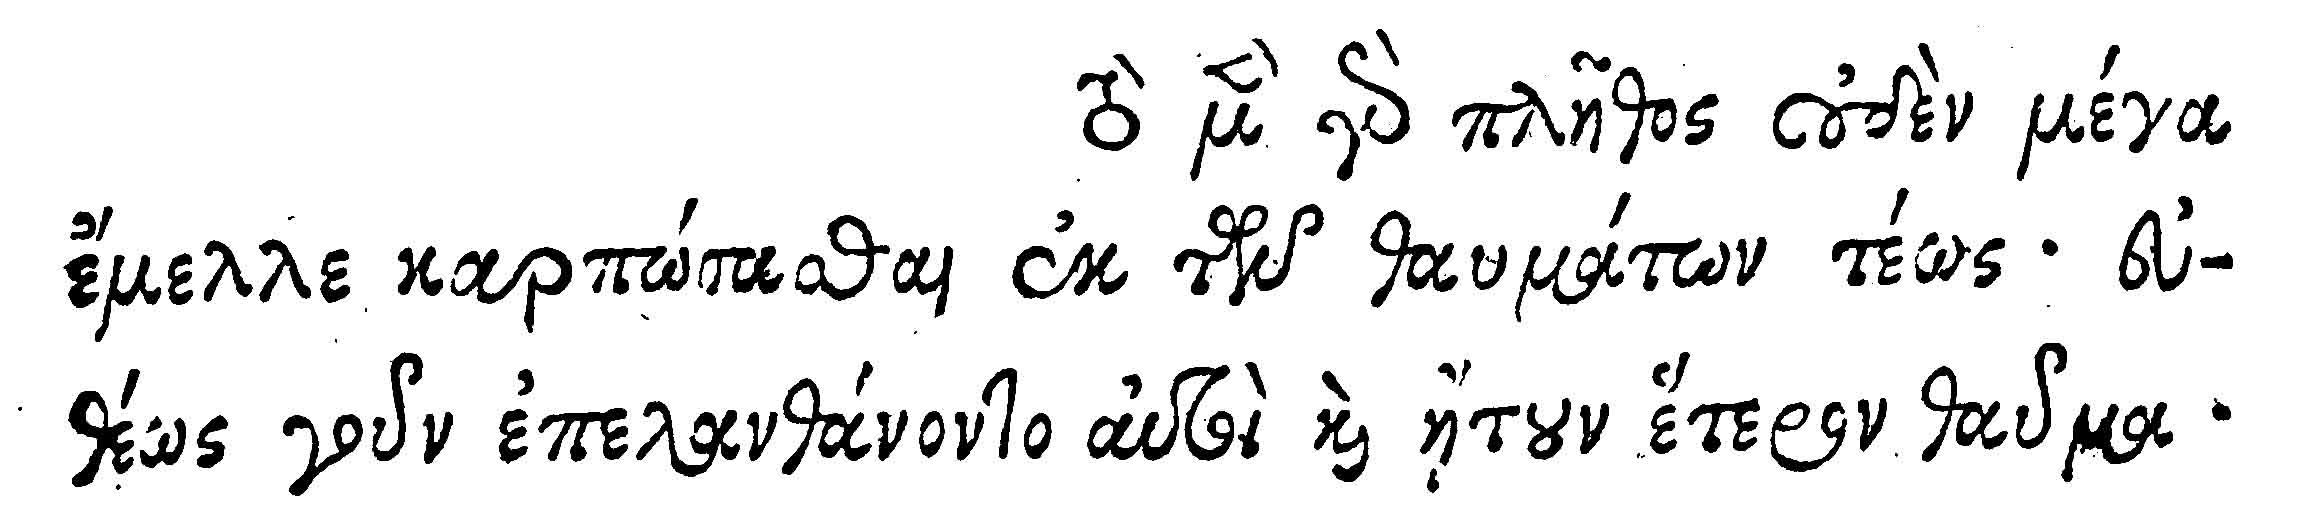 τὸ μὲν γὰρ πλῆθος οὐδὲν μέγα
ἔμελλε καρπώσασθαι ἐκ τῶν θαυμάτων τέως · εὐ-
θέως γοῦν ἐπελανθάνοντο αὐτοὶ καὶ ᾔτουν ἕτερον θαῦμα ·